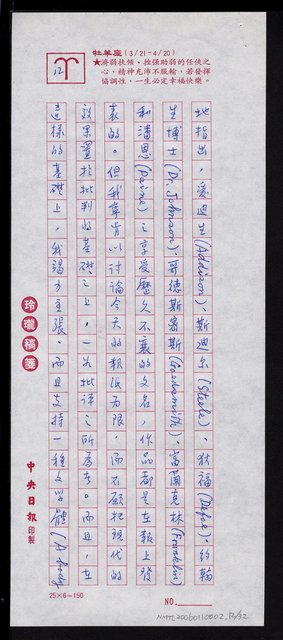 牡羊座(3/21-4/20)
★濟弱扶傾、挫強助弱的任俠之
心,精神充沛不服輸,若發揮
協調性,一生必定幸福快樂。
12
地指出,愛迪生(Addison)、斯迪尔(Steele)、狄福(Defoe)、約翰
生博士(Dr. Johnson)、哥德斯密斯(Goldsmith)、富蘭克林(Franklin)
和潘恩(Paine)之享受歷久不衰的文名,作品都是在報上發
表的。但我寧肯以討論今天的報紙為限,而不願把現代的
效果置於批判的基礎之上,一如批評之所為者。而且,在
這樣的基礎上,我竭力主張,而且支持一種文学體(A body
玲瓏稿箋
中央日報印製
25×6=150
NO.